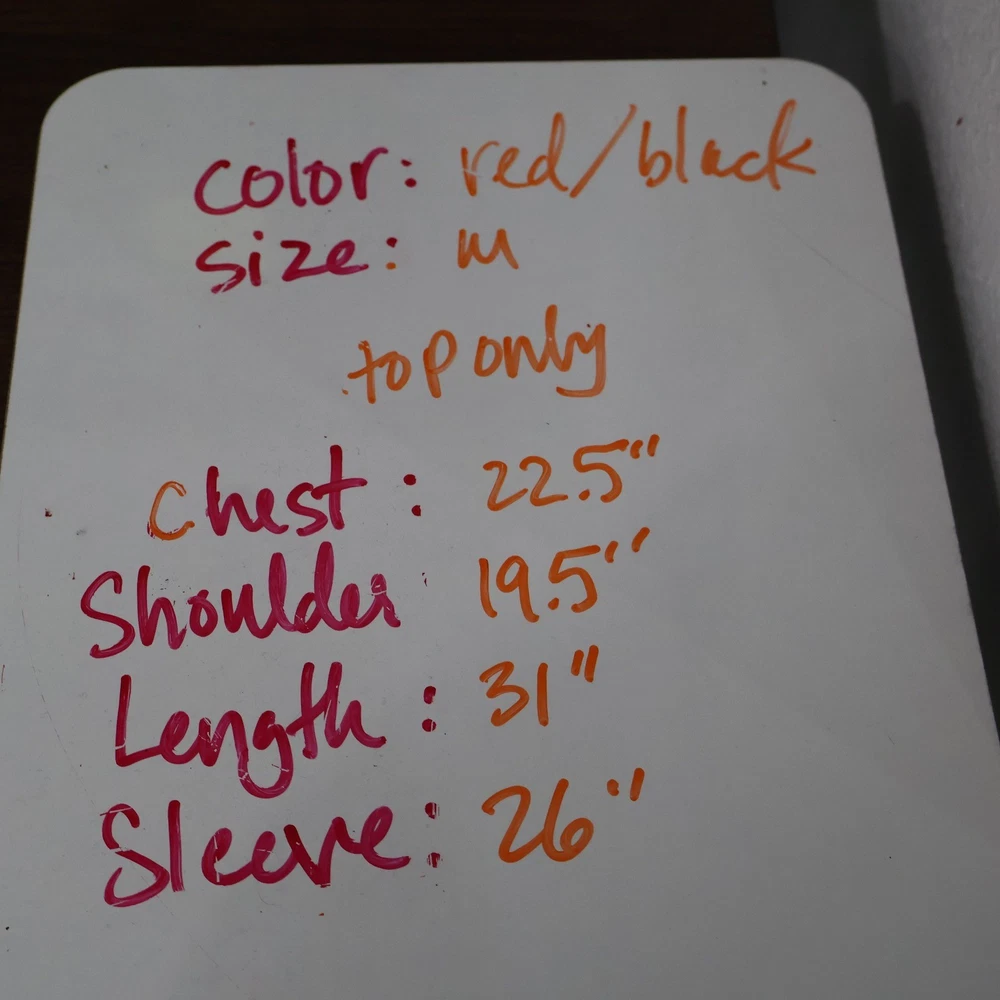 color: red/black
size: M
top only
Chest: 22.5"
Shoulder: 19.5"
Length: 31"
Sleeve: 26"